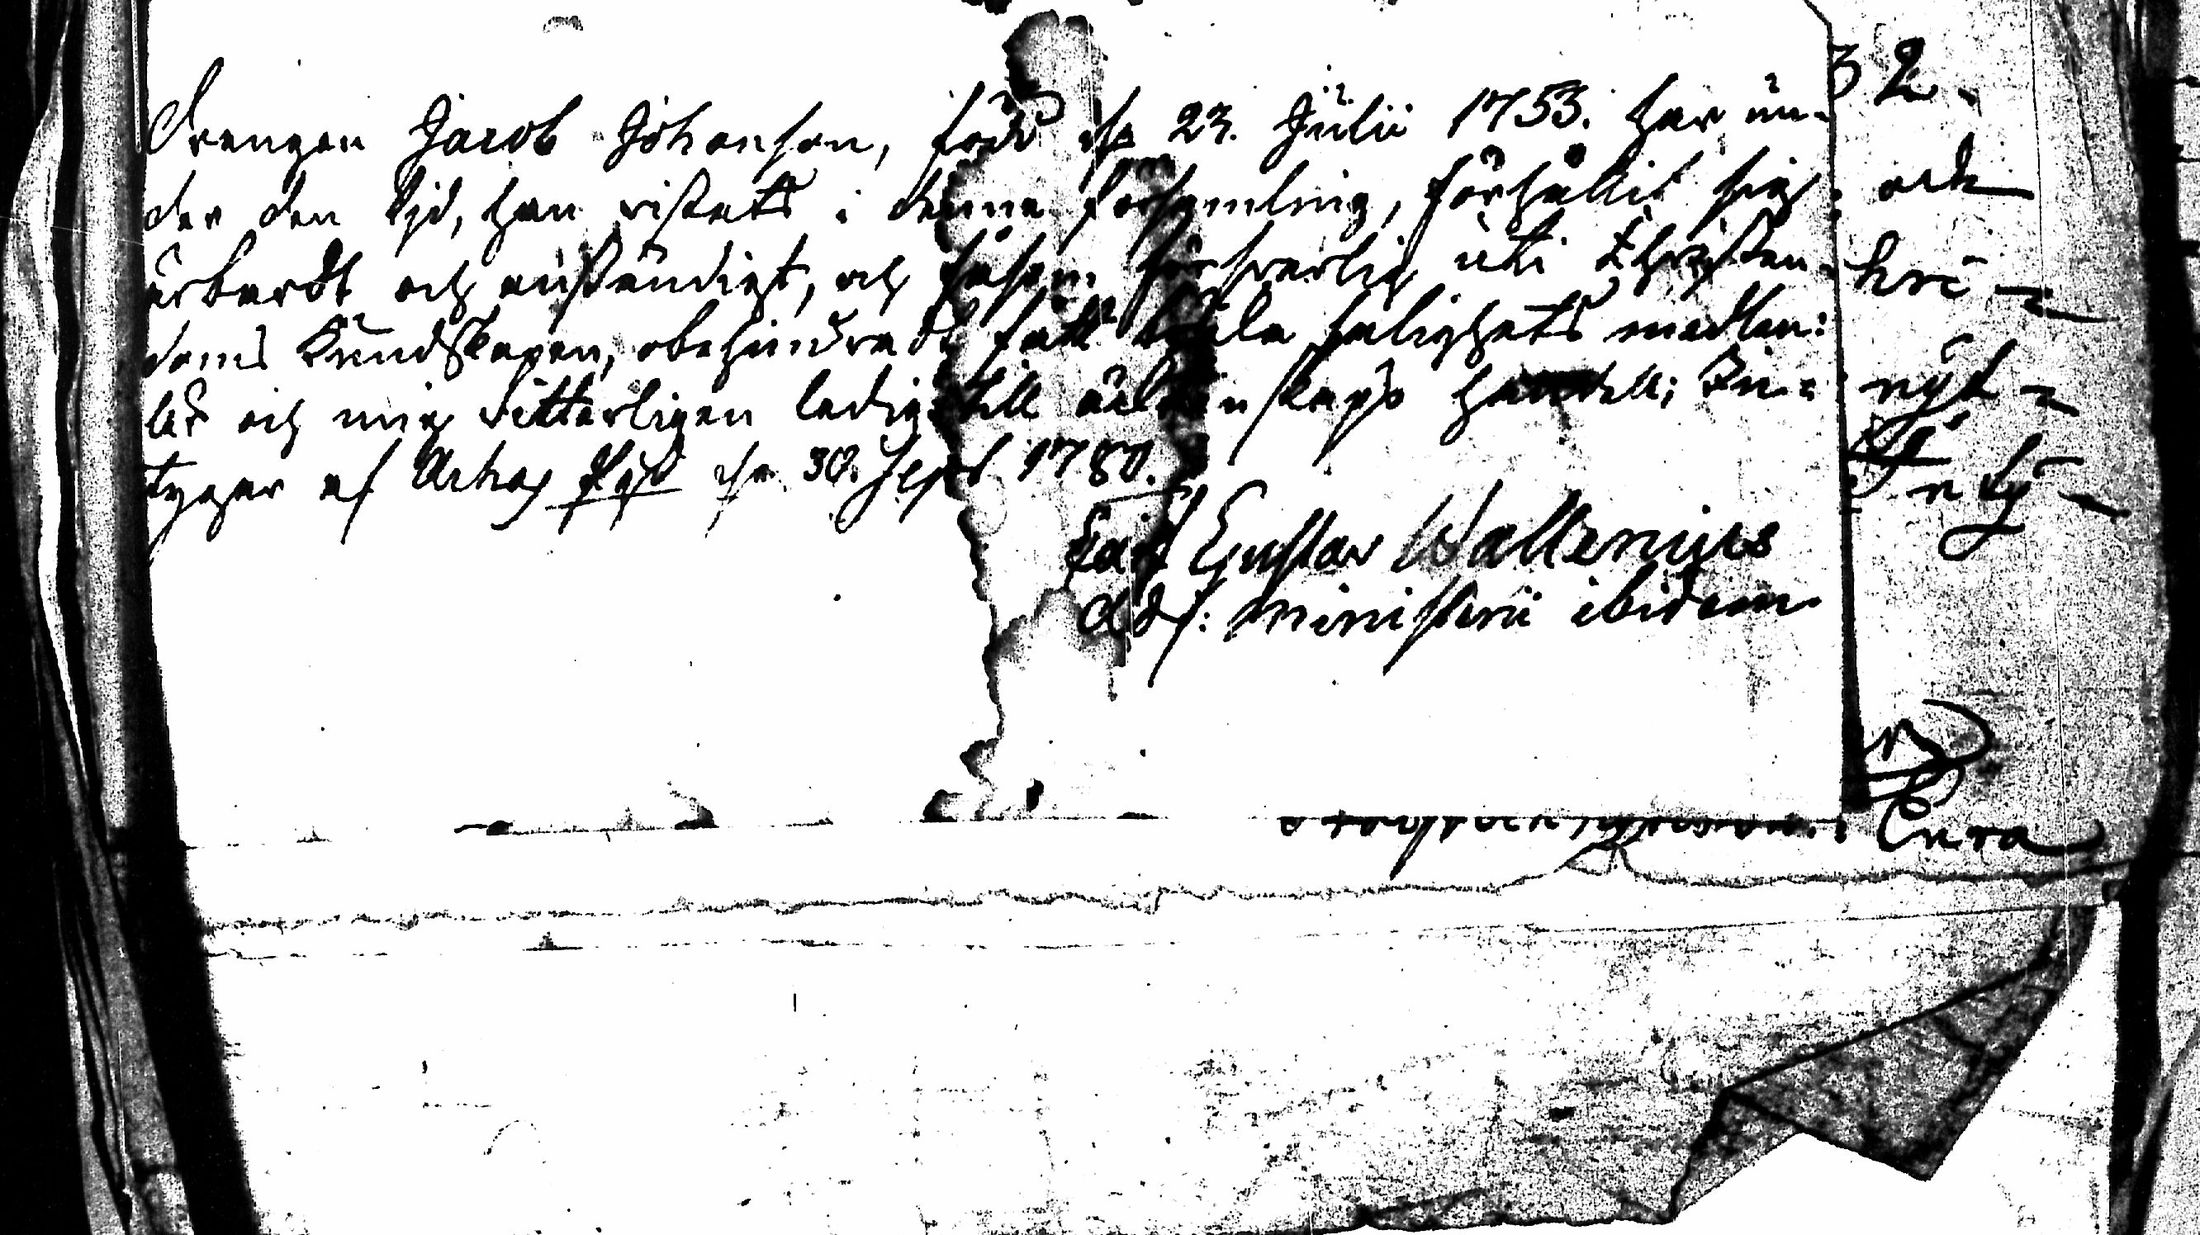 Drengen Jacob Johanson, född d. 23. Julii 1753. har un-
der den tjd, han vistats i denna församling, förhållit sig
ärbardt och anständigt, och såsom försvarlig uti Christen-
doms Kundskapen, obehindradt fått bruka salighets medlen:
les och mig vitterligen ledig till äcktenskaps handell; Be-
tygar af
d. 30. Sept 1780.
Gustav Wallenius
Adj: Ministerii ibidem
32.
och
nyt
Cura